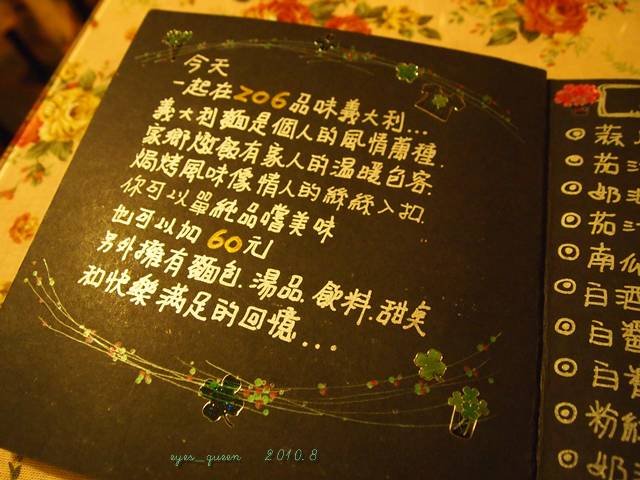 今天
一起在206品味義大利...
義大利麵是個人的風情萬種.
家鄉燉飯有家人的溫暖包容.
焗烤風味像情人的絲絲入扣.
你可以單純品嚐美味
也可以加60元
另外擁有麵包.湯品.飲料.甜矣
和快樂滿足的回憶...
茄汁
奶油
茄汁
南仙
白酒
白醬
白醬
粉紅
奶
eyes_queen 2010.8